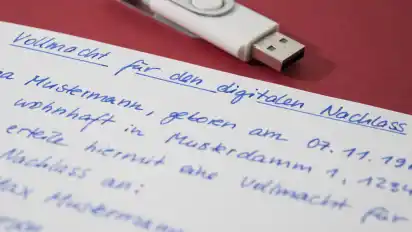 Vollmacht für den digitalen Nachlass
Mustermann, geboren am 07.11.19
wohnhaft in Musterdamm 1, 1234
erteile hiermit eine Vollmacht für
Nachlass an:
Max Mustermann